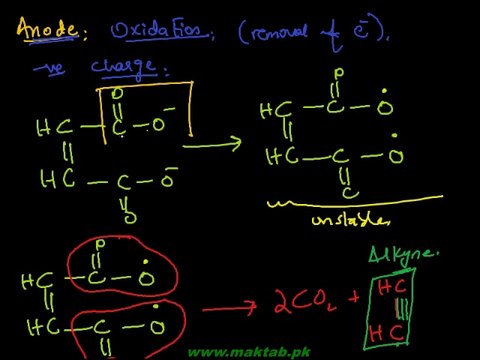 Anode: Oxidation: (removal of e⁻).
-ve charge.
O
HC - C - O⁻
HC - C - O⁻
O
P
HC - C - O•
HC - C - O•
C
unstable
P
HC - C - O•
HC - C - O•
→ 2CO₂ +
Alkyne.
HC
|||
HC
www.maktab.pk